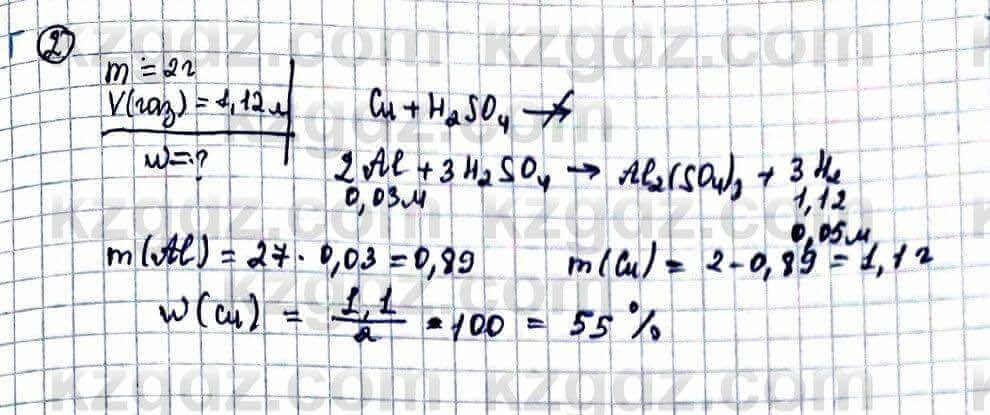 2
m = 2г
V(газ) = 1,12л
w = ?
Cu + H₂SO₄ ↛
2Al + 3H₂SO₄ → Al₂(SO₄)₃ + 3H₂
0,03м
1,12
0,05м
m(Al) = 27 · 0,03 = 0,89
m(Cu) = 2 - 0,89 = 1,1г
w(Cu) = 1,1/2 · 100 = 55%
kzgdz.com